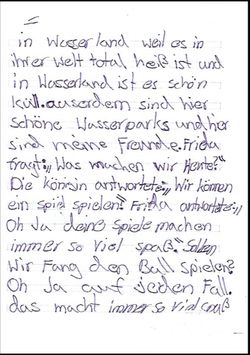 in Wasserland weil es in
ihrer Welt total heiß ist und
in Wasserland ist es schön
küll. auserdem sind hier
schöne Wasserparks und her
sind meine Freunde. Frida
fragt: „Was machen wir Heute?"
Die könisin antwortete: „Wir können
ein spiel spielen." Frida antwortete: „
Oh Ja deine Spiele machen
immer so viel spaß." Sollen
Wir Fang den Ball spielen?
Oh Ja auf jeden Fall.
das macht immer so viel spaß